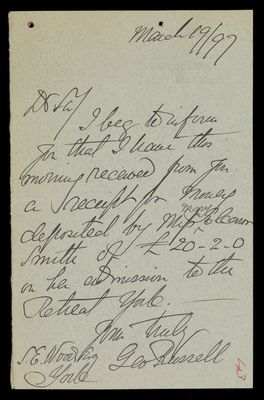 March 19/97
Dr Sir/
I beg to inform
you that I have this
morning received from you
a receipt for money
deposited by Miss Mary Eleanor
Smith of £20-2-0
on her admission to the
Retreat York.
Yours truly
Geo Russell
S. E. Woodhey
York